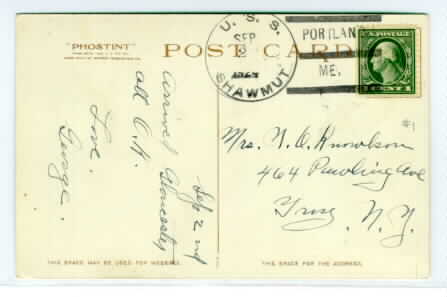 "PHOSTINT"
POST CARD
U. S. S.
SEP
2
SHAWMUT
PORTLAND
ME.
U.S. POSTAGE
1 CENT 1
#1
Sep 2nd
Arrived Gloucester
all O.K.
Love.
George.
Mrs. N. O. Knowlson
464 Pawling Ave
Troy, N. Y.
THIS SPACE MAY BE USED FOR MESSAGE.
THIS SPACE FOR THE ADDRESS.